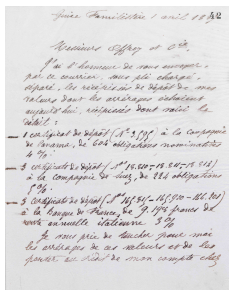 Guise Familistère 1 avril 18
42
Messieurs Offroy et Cie,
J'ai l'honneur de vous envoyer,
par ce courrier, sous pli chargé,
séparé, les récépissés de dépôt de mes
valeurs dont les arrérages échoient
aujourd'hui, récépissés dont voici le
détail :
1 certificat de dépôt (N° 2,595) à la Compagnie
de Panama, de 604 obligations nominatives
4 %
3 certificats de dépôt
à la Compagnie de Suez, de 224 obligations
5 %.
3 certificats de dépôt
à la Banque de France, de 9.198 francs de
rente annuelle italienne 3 %
Je vous prie de toucher pour moi
les arrérages de ces valeurs et de les
porter au crédit de mon compte chez